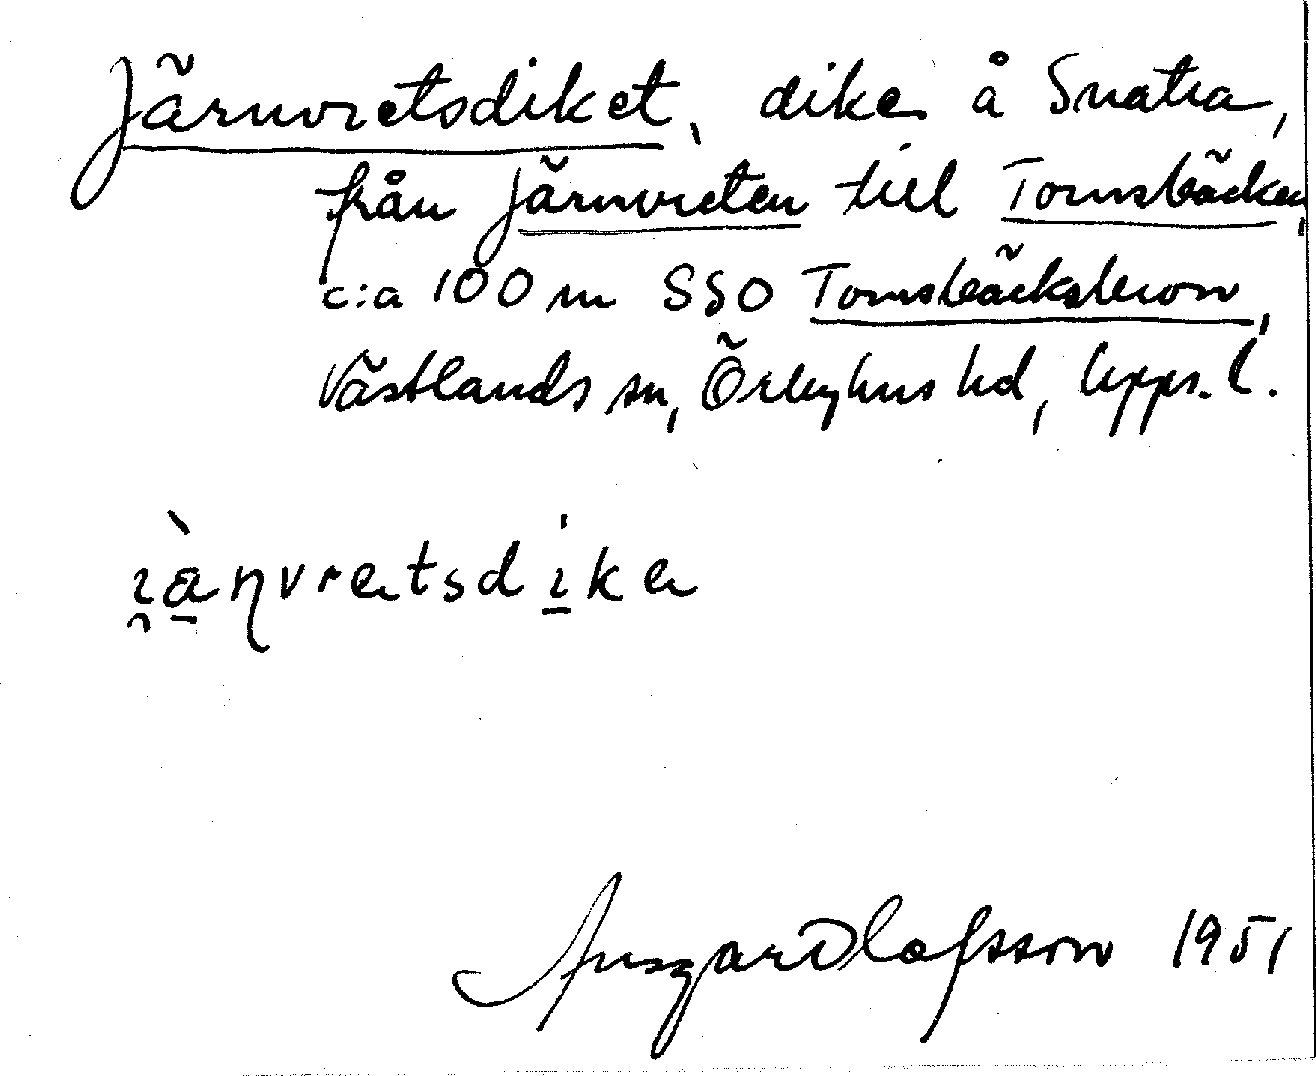 Järnvretsdiket, dike å Snatra,
från Järnvreten till Tomsbäcken,
c:a 100 m SSO Tomsbäcksbron,
Västlands sn, Örbyhus hd, Upps. l.
ı̯ä̀ņvretsdike
Ansgar Olofsson 1951